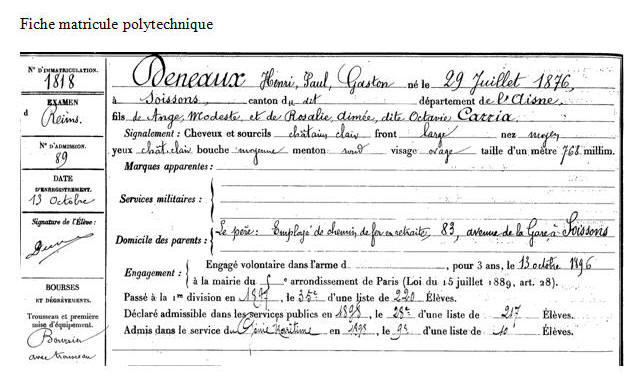 Fiche matricule polytechnique
N° D'IMMATRICULATION.
1818
EXAMEN
d Reims.
N° D'ADMISSION.
89
DATE
D'ENREGISTREMENT.
13 Octobre
Signature de l'Élève :
BOURSES
ET DÉGRÈVEMENTS.
Trousseau et première
mise d'équipement.
Boursier
avec trousseau
Deneaux Henri, Paul, Gaston né le 29 Juillet 1876,
à Soissons, canton du dit département de l'Aisne,
fils de Ange, Modeste et de Rosalie, Aimée, dite Octavie Carria
Signalement : Cheveux et sourcils châtains clair front large nez moyen
yeux chât. clair bouche moyenne menton rond visage ovale taille d'un mètre 768 millim.
Marques apparentes :
Services militaires :
Domicile des parents : Le père : Employé de chemin de fer en retraite, 83, avenue de la Gare à Soissons
Engagement : Engagé volontaire dans l'arme d , pour 3 ans, le 13 octobre 1896
à la mairie du 5e arrondissement de Paris (Loi du 15 juillet 1889, art. 28).
Passé à la 1re division en 1897, le 35e d'une liste de 220 Élèves.
Déclaré admissible dans les services publics en 1898, le 28e d'une liste de 217 Élèves.
Admis dans le service du Génie Maritime en 1898, le 9e d'une liste de 10 Élèves.